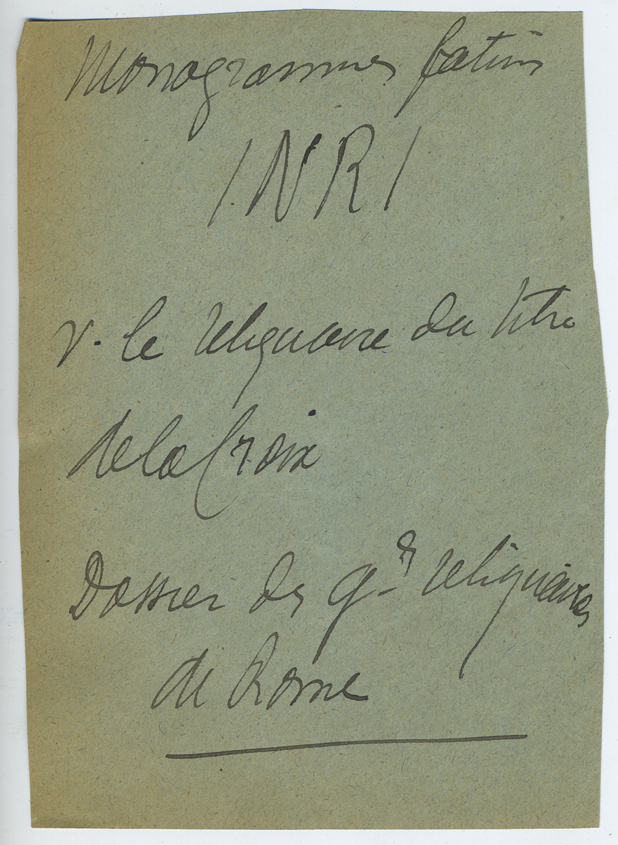 Monogrammes latins
INRI
v. le reliquaire du titre
de la Croix
Dossier des gds reliquaires
de Rome